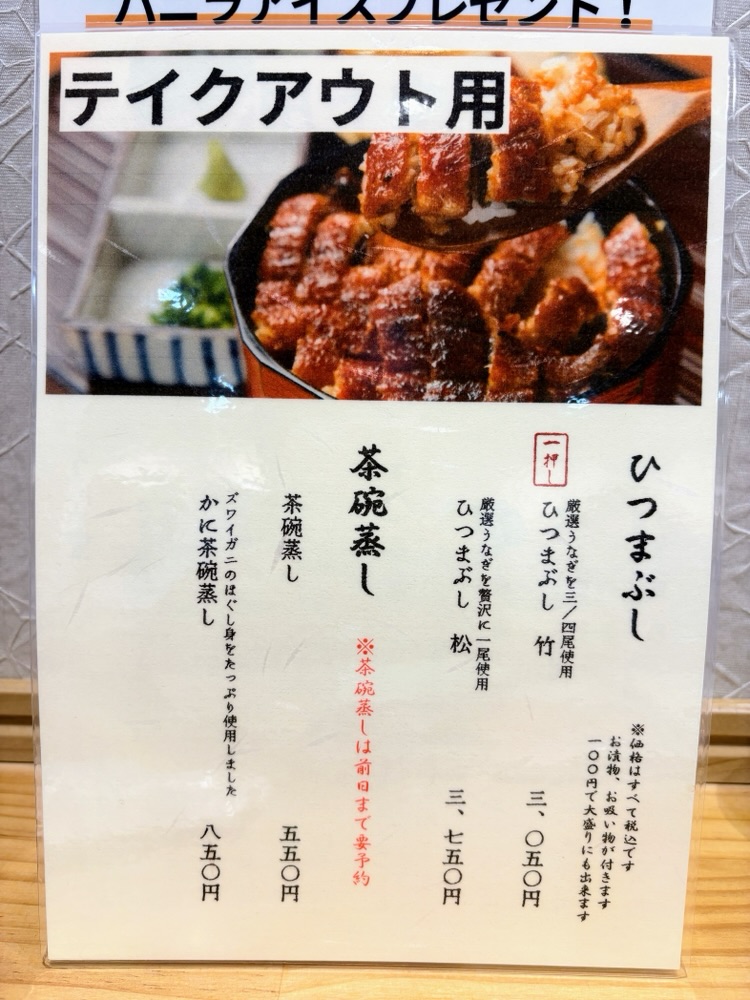 バニラアイスプレゼント！
テイクアウト用
ひつまぶし
※価格はすべて税込です
お漬物、お吸い物が付きます
一〇〇円で大盛りにも出来ます
一押し
厳選うなぎを三／四尾使用
ひつまぶし 竹 三、〇五〇円
厳選うなぎを贅沢に一尾使用
ひつまぶし 松 三、七五〇円
茶碗蒸し ※茶碗蒸しは前日まで要予約
茶碗蒸し 五五〇円
ズワイガニのほぐし身をたっぷり使用しました
かに茶碗蒸し 八五〇円